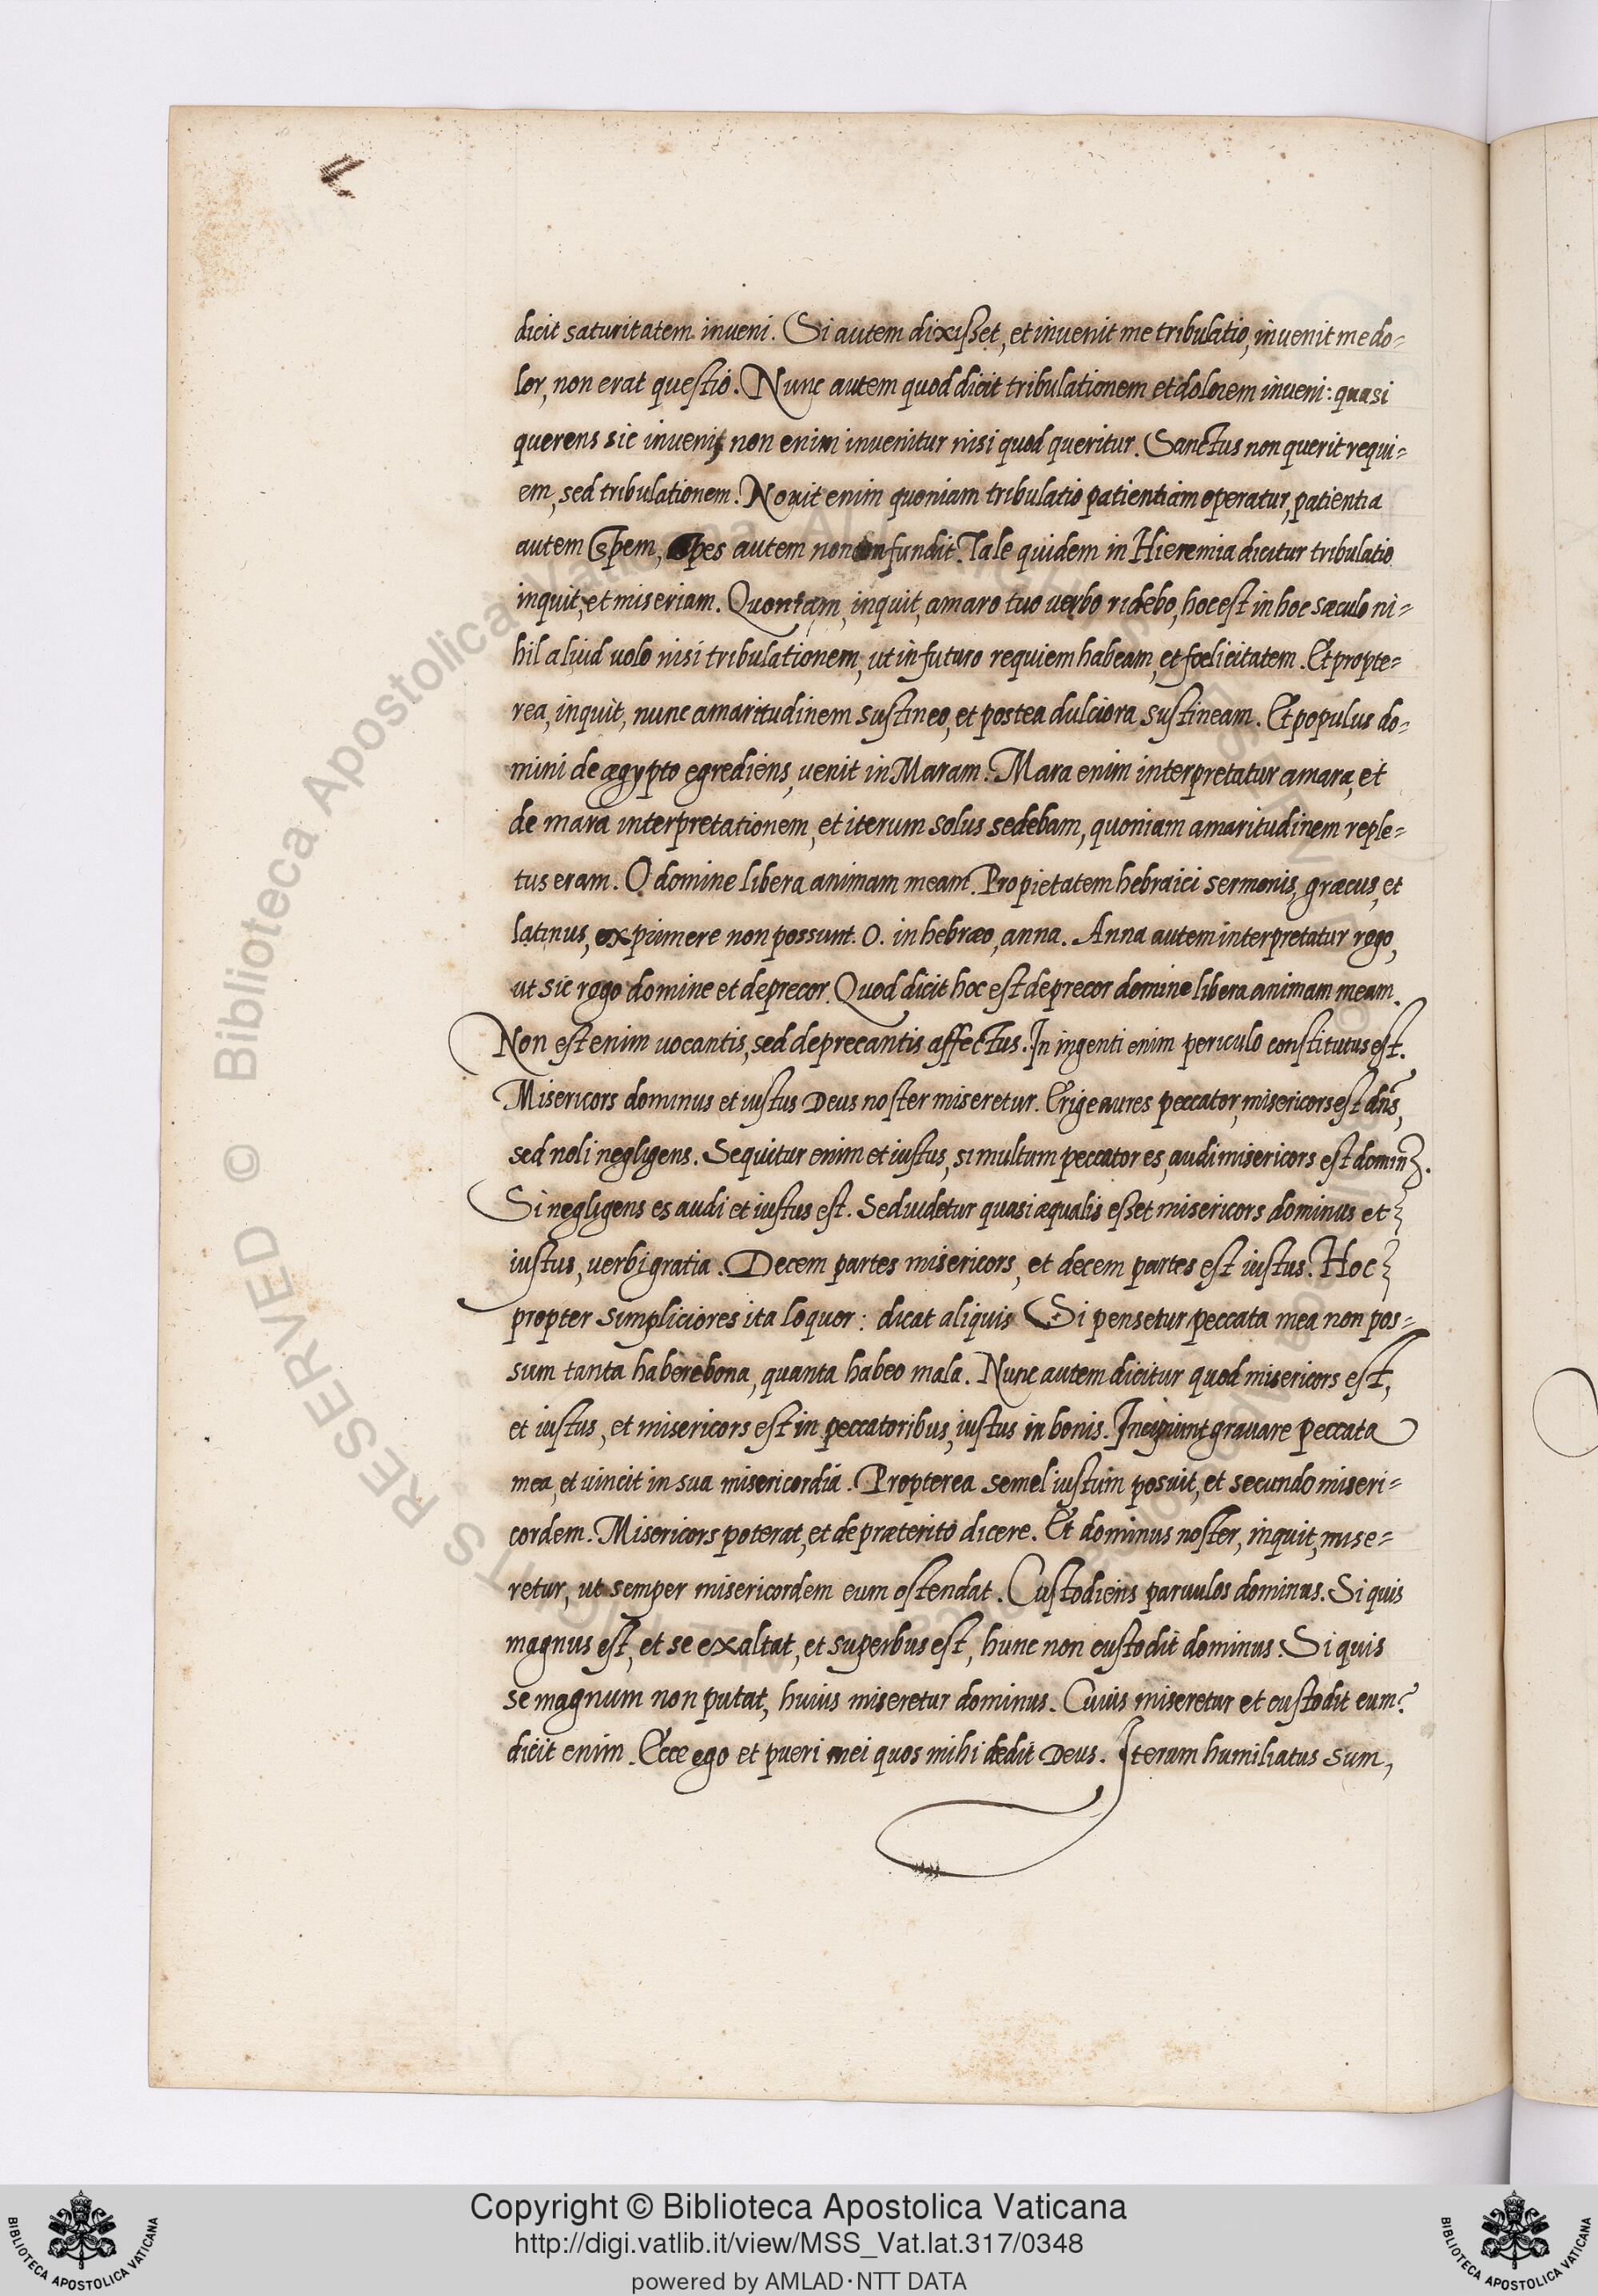 dicit saturitatem inveni. Si autem dixisset, et invenit me tribulatio, invenit me do=
lor, non erat questio. Nunc autem quod dicit tribulationem et dolorem inveni: quasi
querens sic invenit, non enim invenitur nisi quod queritur. Sanctus non querit requi=
em, sed tribulationem. Nouit enim quoniam tribulatio patientiam operatur, patientia
autem Spem, Spes autem non confundit. Tale quidem in Hieremia dicitur tribulatio
inquit, et miseriam. Quoniam, inquit, amaro tuo verbo ridebo, hoc est in hoc sæculo ni=
hil aliud uolo nisi tribulationem, ut in futuro requiem habeam, et fœlicitatem. Et propte=
rea, inquit, nunc amaritudinem sustineo, et postea dulciora sustineam. Et populus do=
mini de ægypto egrediens, venit in Maram. Mara enim interpretatur amara, et
de mara interpretationem, et iterum solus sedebam, quoniam amaritudinem reple=
tus eram. O domine libera animam meam. Propietatem hebraici sermonis, græcus, et
latinus, exprimere non possunt. O. in hebræo, anna. Anna autem interpretatur rogo,
ut sic rogo domine et deprecor. Quod dicit hoc est deprecor domine libera animam meam.
Non est enim uocantis, sed deprecantis affectus. In ingenti enim periculo constitutus est.
Misericors dominus et iustus Deus noster miseretur. Erige aures peccator, misericors est dns,
sed noli negligens. Sequitur enim et iustus, si multum peccator es, audi misericors est domin9.
Si negligens es audi et iustus est. Sed uidetur quasi æqualis esset misericors dominus et
iustus, verbi gratia. Decem partes misericors, et decem partes est iustus. Hoc
propter simpliciores ita loquor: dicat aliquis Si pensetur peccata mea non pos=
sum tanta habere bona, quanta habeo mala. Nunc autem dicitur quod misericors est,
et iustus, et misericors est in peccatoribus, iustus in bonis. Incipiunt gravare peccata
mea, et vincit in sua misericordia. Propterea semel iustum posuit, et secundo miseri=
cordem. Misericors poterat, et de præterito dicere. Et dominus noster, inquit, mise=
retur, ut semper misericordem eum ostendat. Custodiens paruulos dominus. Si quis
magnus est, et se exaltat, et superbus est, hunc non custodit dominus. Si quis
se magnum non putat, huius miseretur dominus. Cuius miseretur et custodit eum?
dicit enim. Ecce ego et pueri mei quos mihi dedit Deus. Iteram humiliatus sum,
Biblioteca Apostolica Vaticana
RIGHTS RESERVED ©
Copyright © Biblioteca Apostolica Vaticana
http://digi.vatlib.it/view/MSS_Vat.lat.317/0348
powered by AMLAD·NTT DATA
BIBLIOTECA APOSTOLICA VATICANA
BIBLIOTECA APOSTOLICA VATICANA